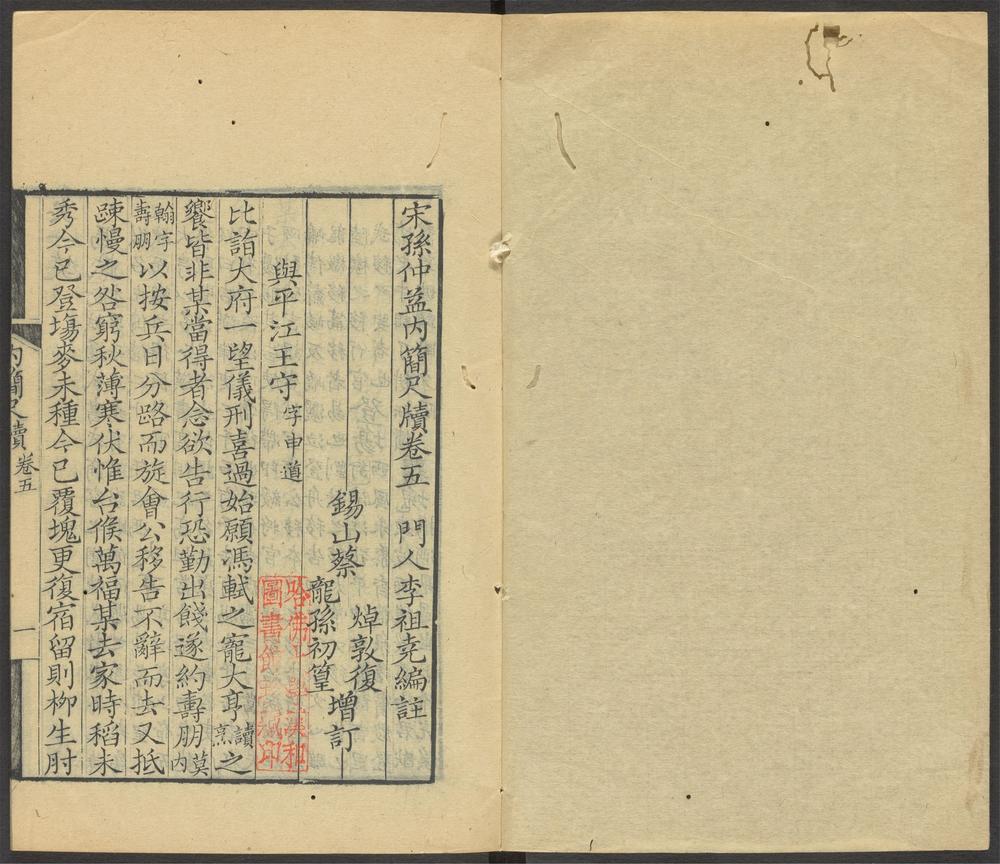 宋孫仲益內簡尺牘卷五　門人李祖堯編註
錫山蔡
焯敦復
龍孫初篁
增訂
與平江王守字申道
比詣大府一望儀刑喜過始願馮軾之寵大亨讀烹之
饗皆非某當得者念欲告行恐勤出餞遂約壽朋莫內
翰字壽朋以按兵日分路而旋會公移告不辭而去又抵
踈慢之咎窮秋薄寒伏惟台候萬福某去家時稻未
秀今已登塲麥未種今已覆塊更復宿留則柳生肘
內簡尺牘 卷五
一
哈佛大學漢和
圖書館珍藏印